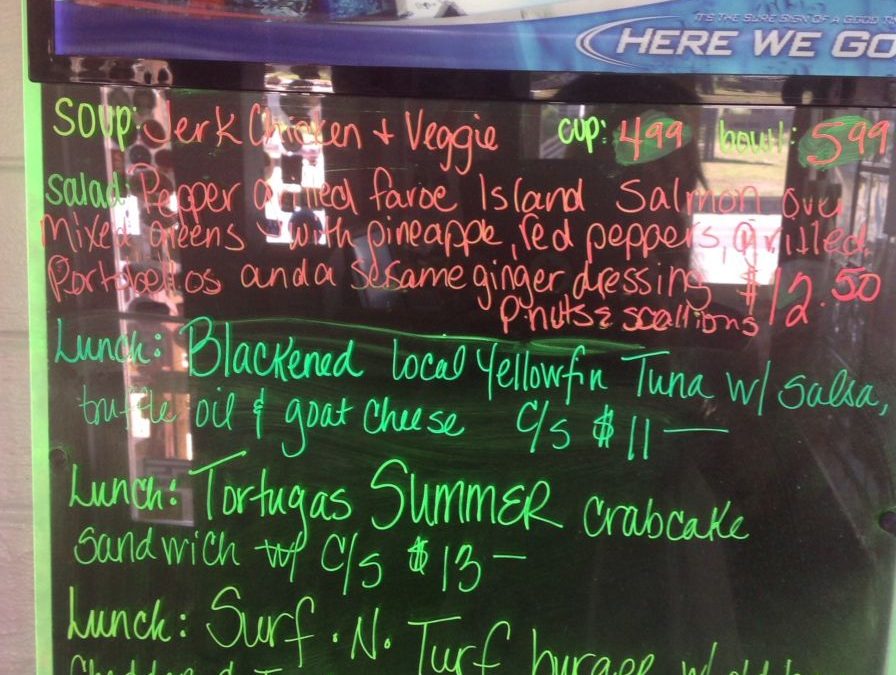 IT'S THE SURE SIGN OF A GOOD
HERE WE GO
Soup: Jerk Chicken + Veggie cup: 499 bowl: 599
Salad: Pepper Grilled Faroe Island Salmon over
Mixed Greens with pineapple, red peppers, Grilled
Portobellos and a sesame ginger dressing $12.50
P.nuts & scallions
Lunch: Blackened local Yellowfin Tuna w/ Salsa,
truffle oil & goat cheese C/S $11—
Lunch: Tortugas SUMMER crabcake
Sandwich w/ C/S $13—
Lunch: Surf.N.Turf burger w/